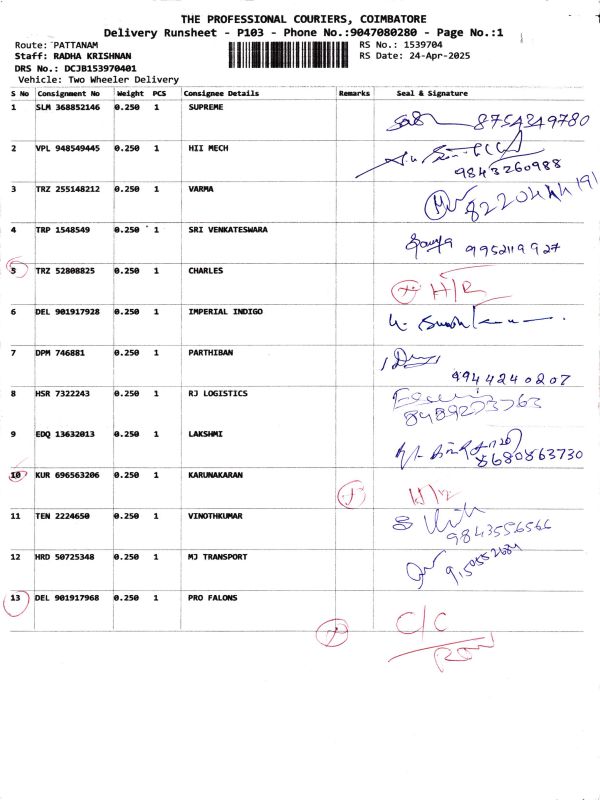 THE PROFESSIONAL COURIERS, COIMBATORE
Delivery Runsheet - P103 - Phone No.:9047080280 - Page No.:1
Route: PATTANAM RS No.: 1539704
Staff: RADHA KRISHNAN RS Date: 24-Apr-2025
DRS No.: DCJB153970401
Vehicle: Two Wheeler Delivery
S No Consignment No Weight PCS Consignee Details Remarks Seal & Signature
1 SLM 368852146 0.250 1 SUPREME 8754349780
2 VPL 948549445 0.250 1 HII MECH
9843260988
3 TRZ 255148212 0.250 1 VARMA
4 TRP 1548549 0.250 1 SRI VENKATESWARA
Sowmya 9952119927
5 TRZ 52808825 0.250 1 CHARLES
H/R
6 DEL 901917928 0.250 1 IMPERIAL INDIGO
7 DPM 746881 0.250 1 PARTHIBAN
9944240207
8 HSR 7322243 0.250 1 RJ LOGISTICS
8489273763
9 EDQ 13632013 0.250 1 LAKSHMI
8680863730
10 KUR 696563206 0.250 1 KARUNAKARAN
11 TEN 2224650 0.250 1 VINOTHKUMAR
9843556566
12 HRD 50725348 0.250 1 MJ TRANSPORT
13 DEL 901917968 0.250 1 PRO FALONS
C/C